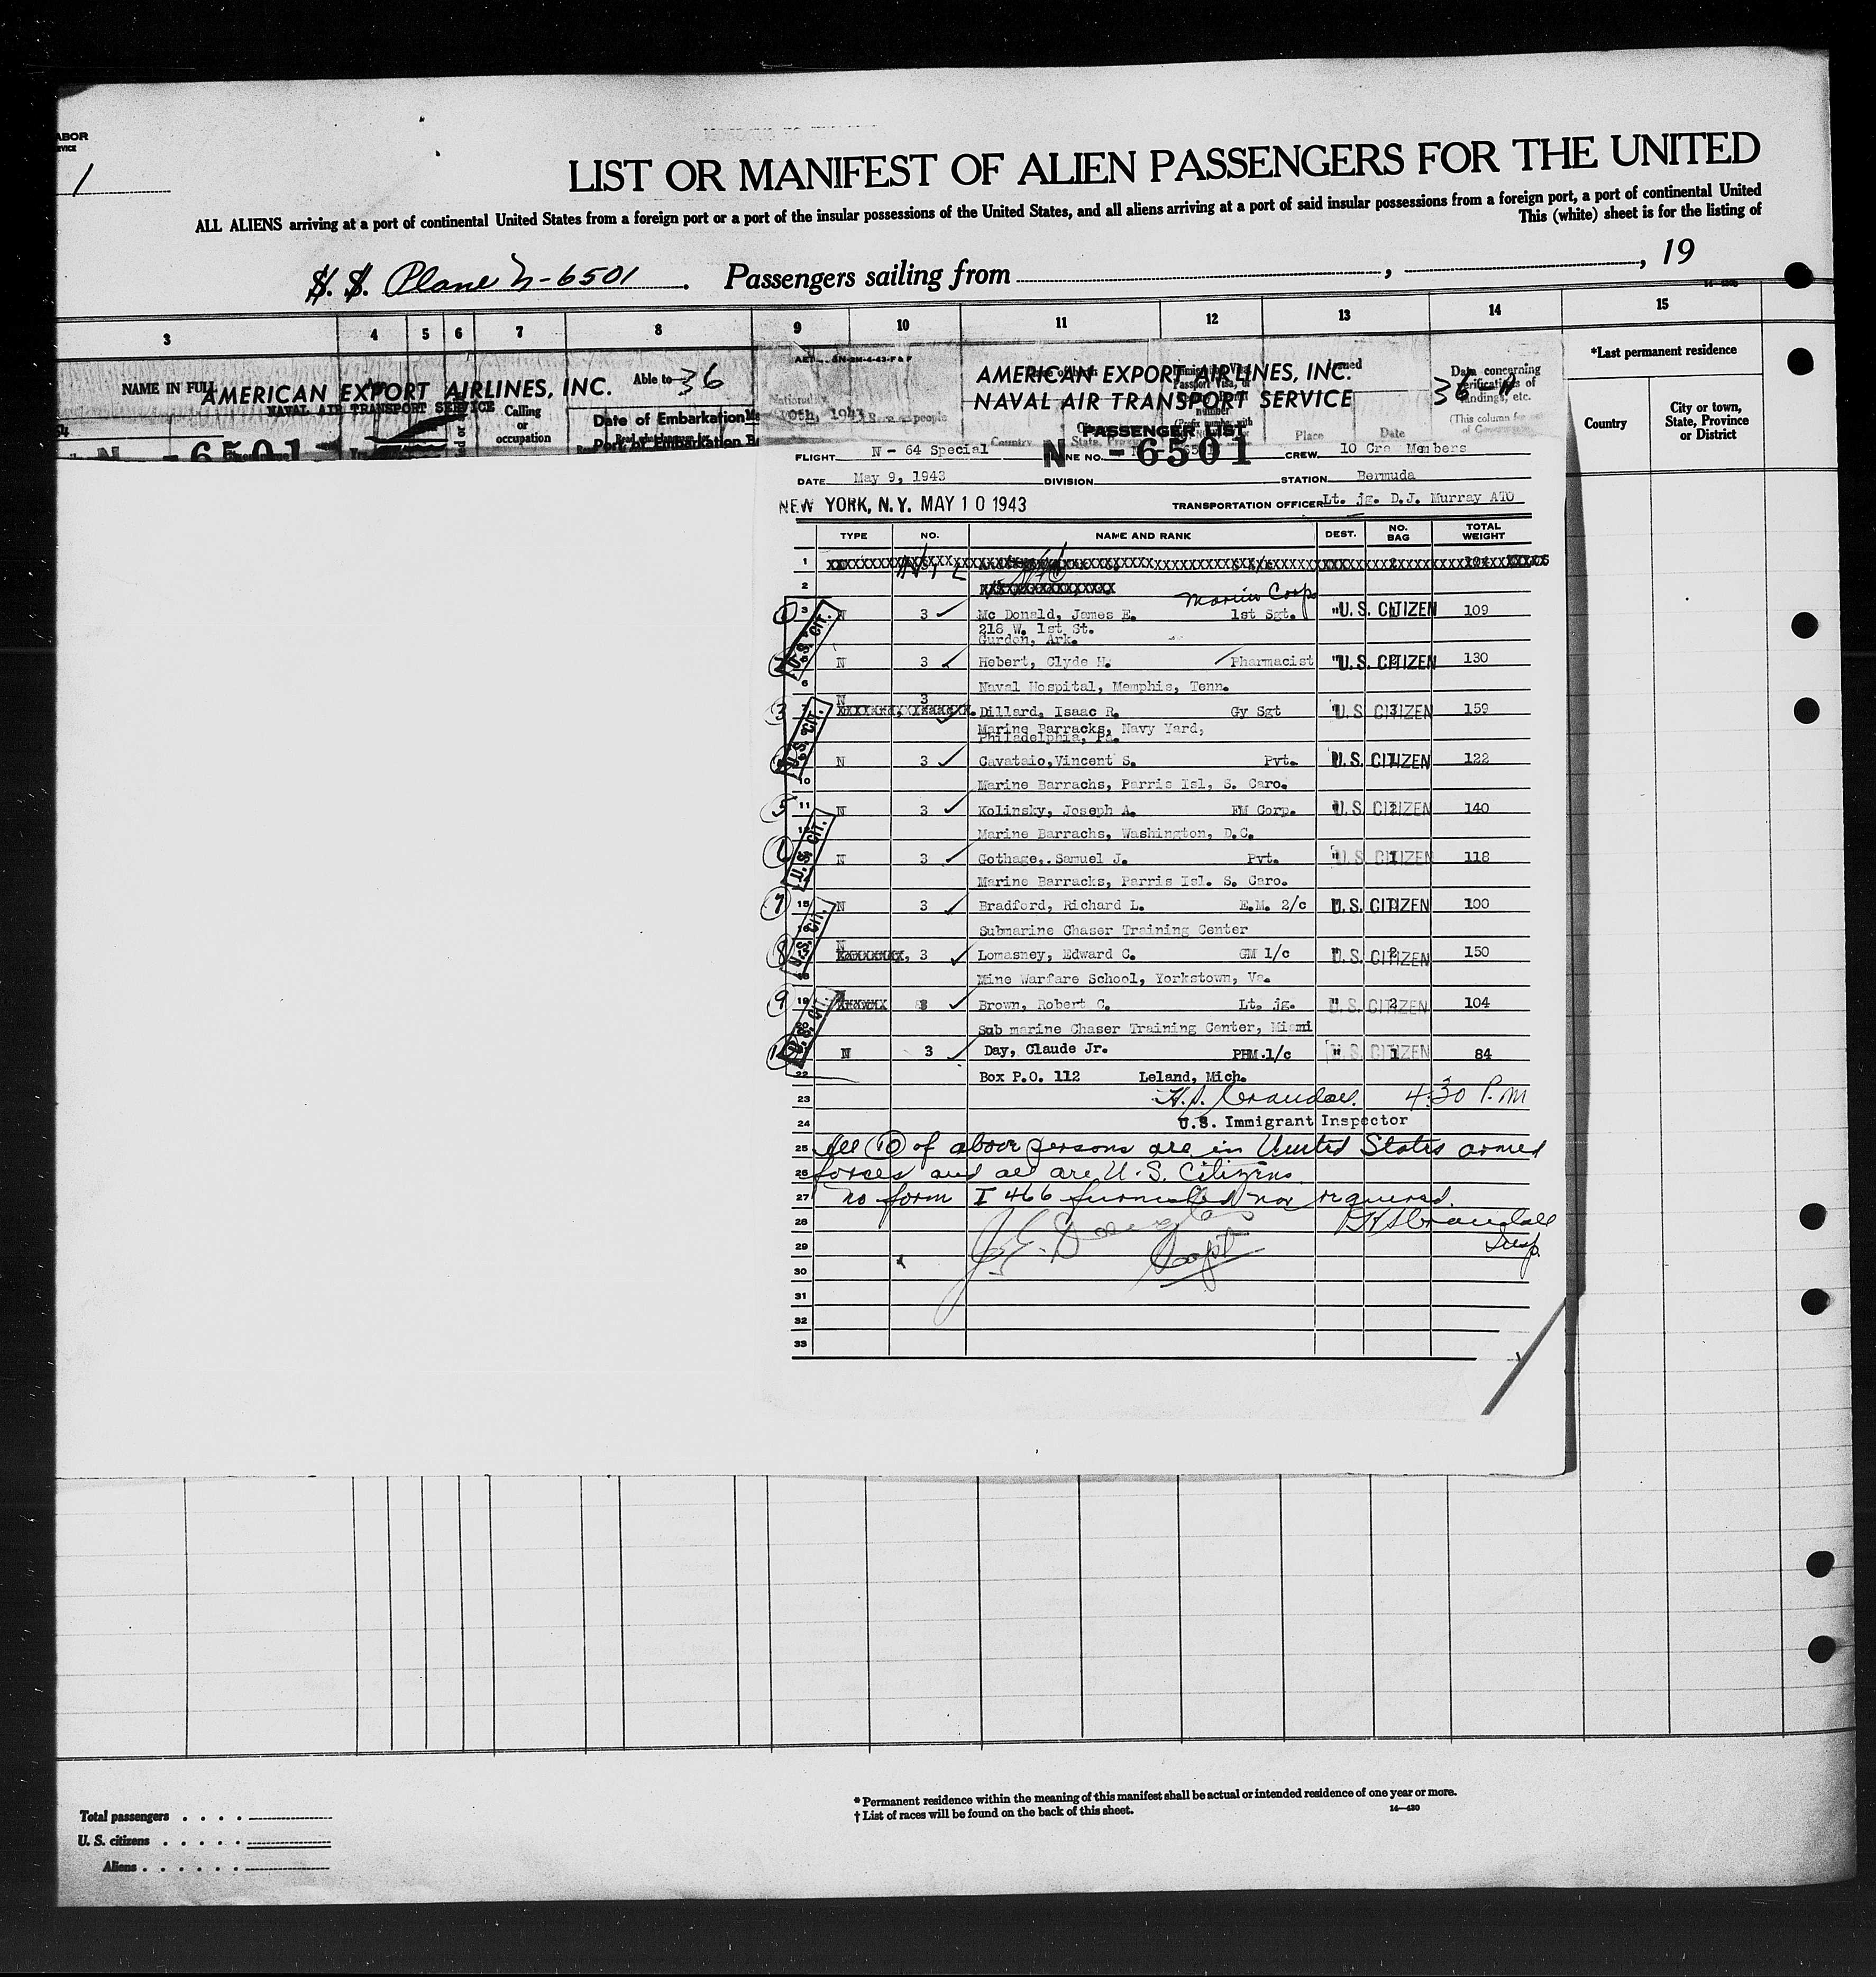 ABOR
RVICE
1
LIST OR MANIFEST OF ALIEN PASSENGERS FOR THE UNITED
ALL ALIENS arriving at a port of continental United States from a foreign port or a port of the insular possessions of the United States, and all aliens arriving at a port of said insular possessions from a foreign port, a port of continental United
This (white) sheet is for the listing of
S. S. Plane N-6501. Passengers sailing from , , 19
3 4 5 6 7 8 9 10 11 12 13 14 15
NAME IN FULL
AMERICAN EXPORT AIRLINES, INC.
NAVAL AIR TRANSPORT SERVICE
Calling or occupation
Able to 36
Date of Embarkation
Port of Embarkation
N - 6501
10th, 1943
AMERICAN EXPORT AIRLINES, INC.
NAVAL AIR TRANSPORT SERVICE
36
Issued
Data concerning verifications of landings, etc.
(This column for
Country
Place Date
*Last permanent residence
Country City or town, State, Province or District
PASSENGER LIST
FLIGHT N - 64 Special PLANE NO. N - 6501 CREW 10 Cre Members
DATE May 9, 1943 DIVISION STATION Bermuda
NEW YORK, N.Y. MAY 10 1943 TRANSPORTATION OFFICER Lt. jg. D.J. Murray ATO
TYPE NO. NAME AND RANK DEST. NO. BAG TOTAL WEIGHT
1
2
Marine Corps
1 3 N 3 Mc Donald, James E. 1st Sgt. " U.S. CITIZEN 1 109
218 W. 1st St.
Gurdon, Ark.
2 5 N 3 Hebert, Clyde H. Pharmacist " U.S. CITIZEN 2 130
6 Naval Hospital, Memphis, Tenn.
3 7 N 3 Dillard, Isaac R. Gy Sgt " U.S. CITIZEN 3 159
Marine Barracks, Navy Yard,
Philadelphia, Pa.
N 3 Cavataio, Vincent S. Pvt. " U.S. CITIZEN 1 122
10 Marine Barrachs, Parris Isl, S. Caro.
5 11 N 3 Kolinsky, Joseph A. FM Corp. " U.S. CITIZEN 2 140
Marine Barrachs, Washington, D.C.
6 N 3 Gothage,. Samuel J. Pvt. " U.S. CITIZEN 1 118
Marine Barracks, Parris Isl. S. Caro.
7 15 N 3 Bradford, Richard L. E.M. 2/c " U.S. CITIZEN 100
Submarine Chaser Training Center
8 N 3 Lomasney, Edward C. GM 1/c " U.S. CITIZEN 2 150
18 Mine Warfare School, Yorkstown, Va.
9 19 3 Brown, Robert C. Lt. jg. " U.S. CITIZEN 2 104
20 Sub marine Chaser Training Center, Miami
10 N 3 Day, Claude Jr. PHM.1/c " U.S. CITIZEN 1 84
22 Box P.O. 112 Leland, Mich.
U.S. CIT.
U.S. CIT.
U.S. CIT.
U.S. CIT.
U.S. CIT.
23 H.S. Crandall 4:30 P.M
24 U.S. Immigrant Inspector
25 All (10) of above persons are in United States armed
26 forces and all are U.S. Citizens.
27 no form I 466 furnished nor required.
28 H S Crandall
29 Capt Insp.
30
31
32
33
Total passengers . . . .
U. S. citizens . . . . .
Aliens . . . . . .
* Permanent residence within the meaning of this manifest shall be actual or intended residence of one year or more.
† List of races will be found on the back of this sheet.
14—430